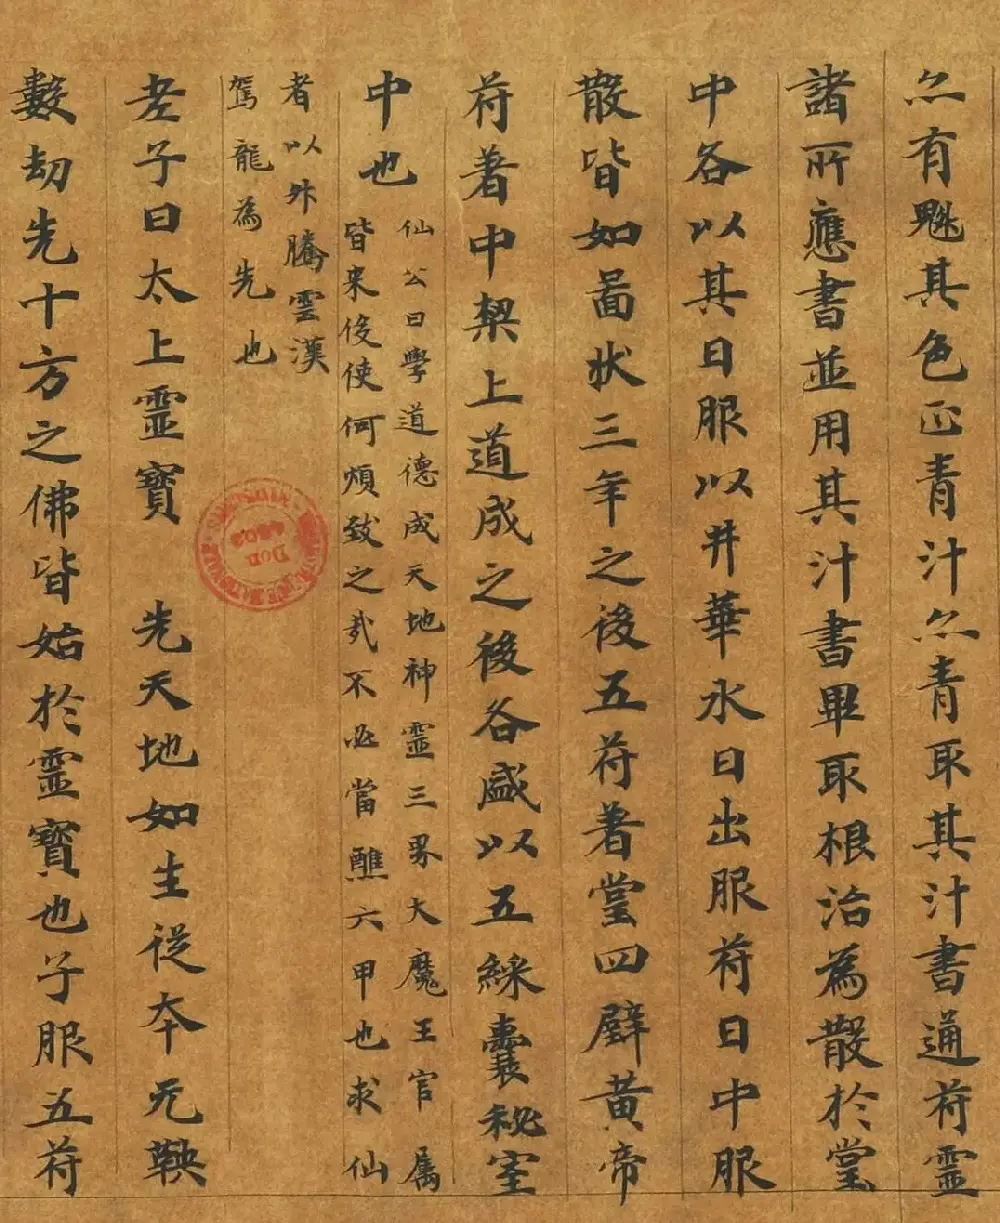 亦有魁其色正青汁亦青取其汁書通符靈
諸所應書並用其汁書畢取根治為散於堂
中各以其日服以井華水日出服符日中服
散皆如啚狀三年之後五符著堂四壁黃帝
符著中樑上道成之後各盛以五綵囊秘室
中也
仙公曰學道德成天地神靈三界大魔王官属
皆来侵使何煩致之哉不必當醮六甲也求仙
者以外騰雲漢
駕龍為先也
老子曰太上靈寶 先天地如生從本无鞅
數劫先十方之佛皆始於靈寶也子服五符
DOD